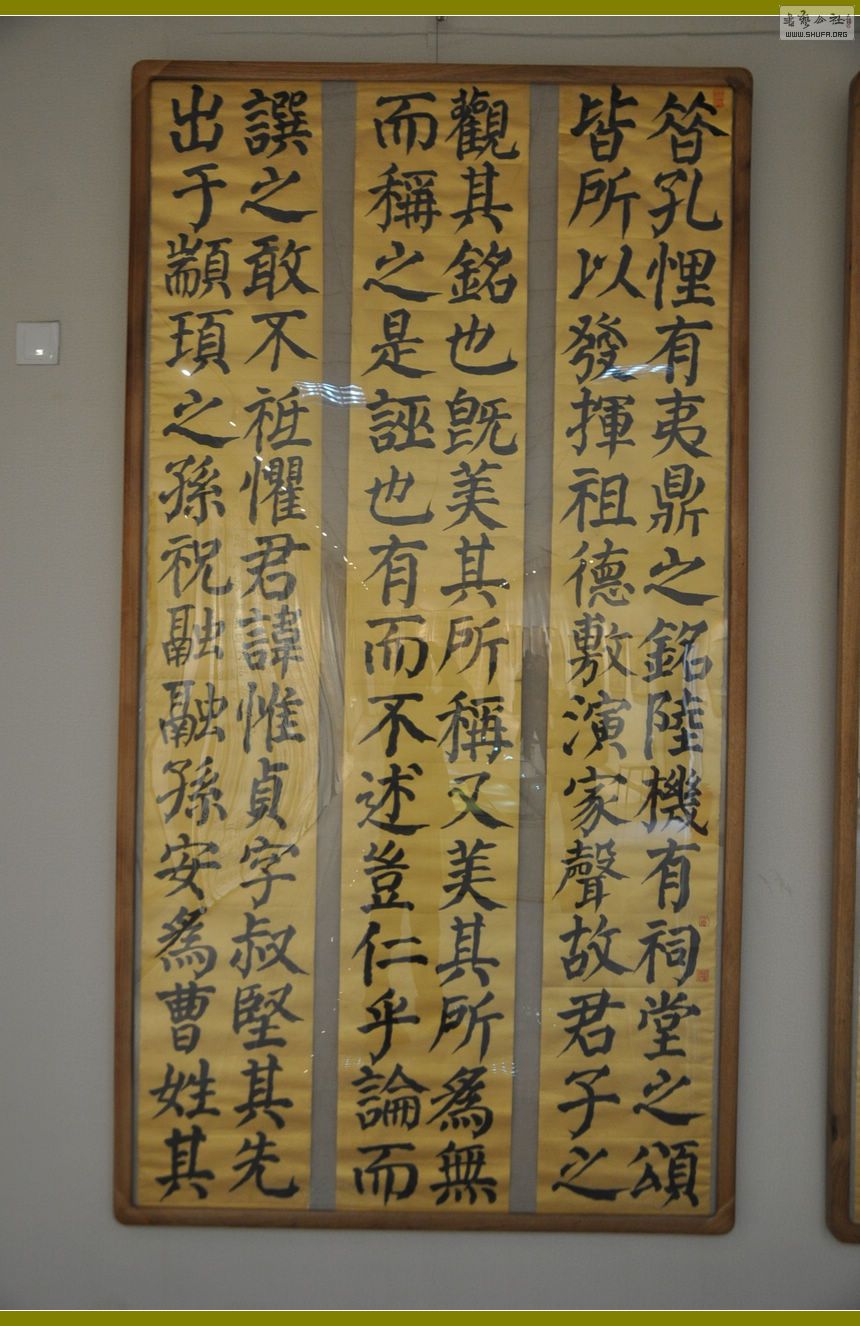 昔孔悝有夷鼎之銘陸機有祠堂之頌
皆所以發揮祖德敷演家聲故君子之
觀其銘也既美其所稱又美其所為無
而稱之是誣也有而不述豈仁乎論而
譔之敢不祗懼君諱惟貞字叔堅其先
出于顓頊之孫祝融融孫安為曹姓其
书艺公社
WWW.SHUFA.ORG